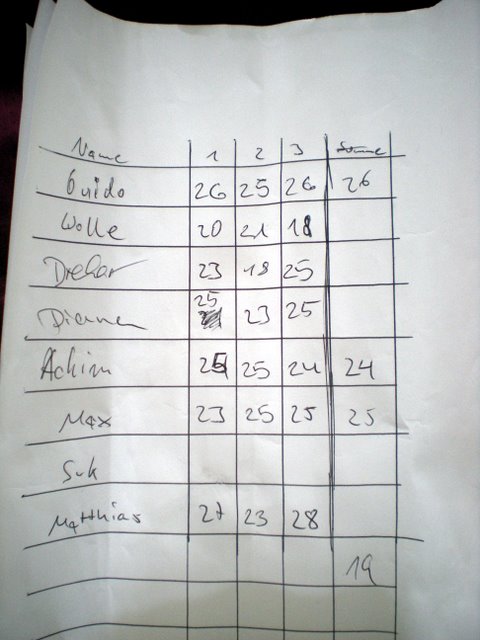 Name 1 2 3 Summe
Guido 26 25 26 26
Wolle 20 21 18
Dreher 23 18 25
25
23 25
Achim 25 25 24 24
Max 23 25 25 25
Suk
Matthias 27 23 28
19